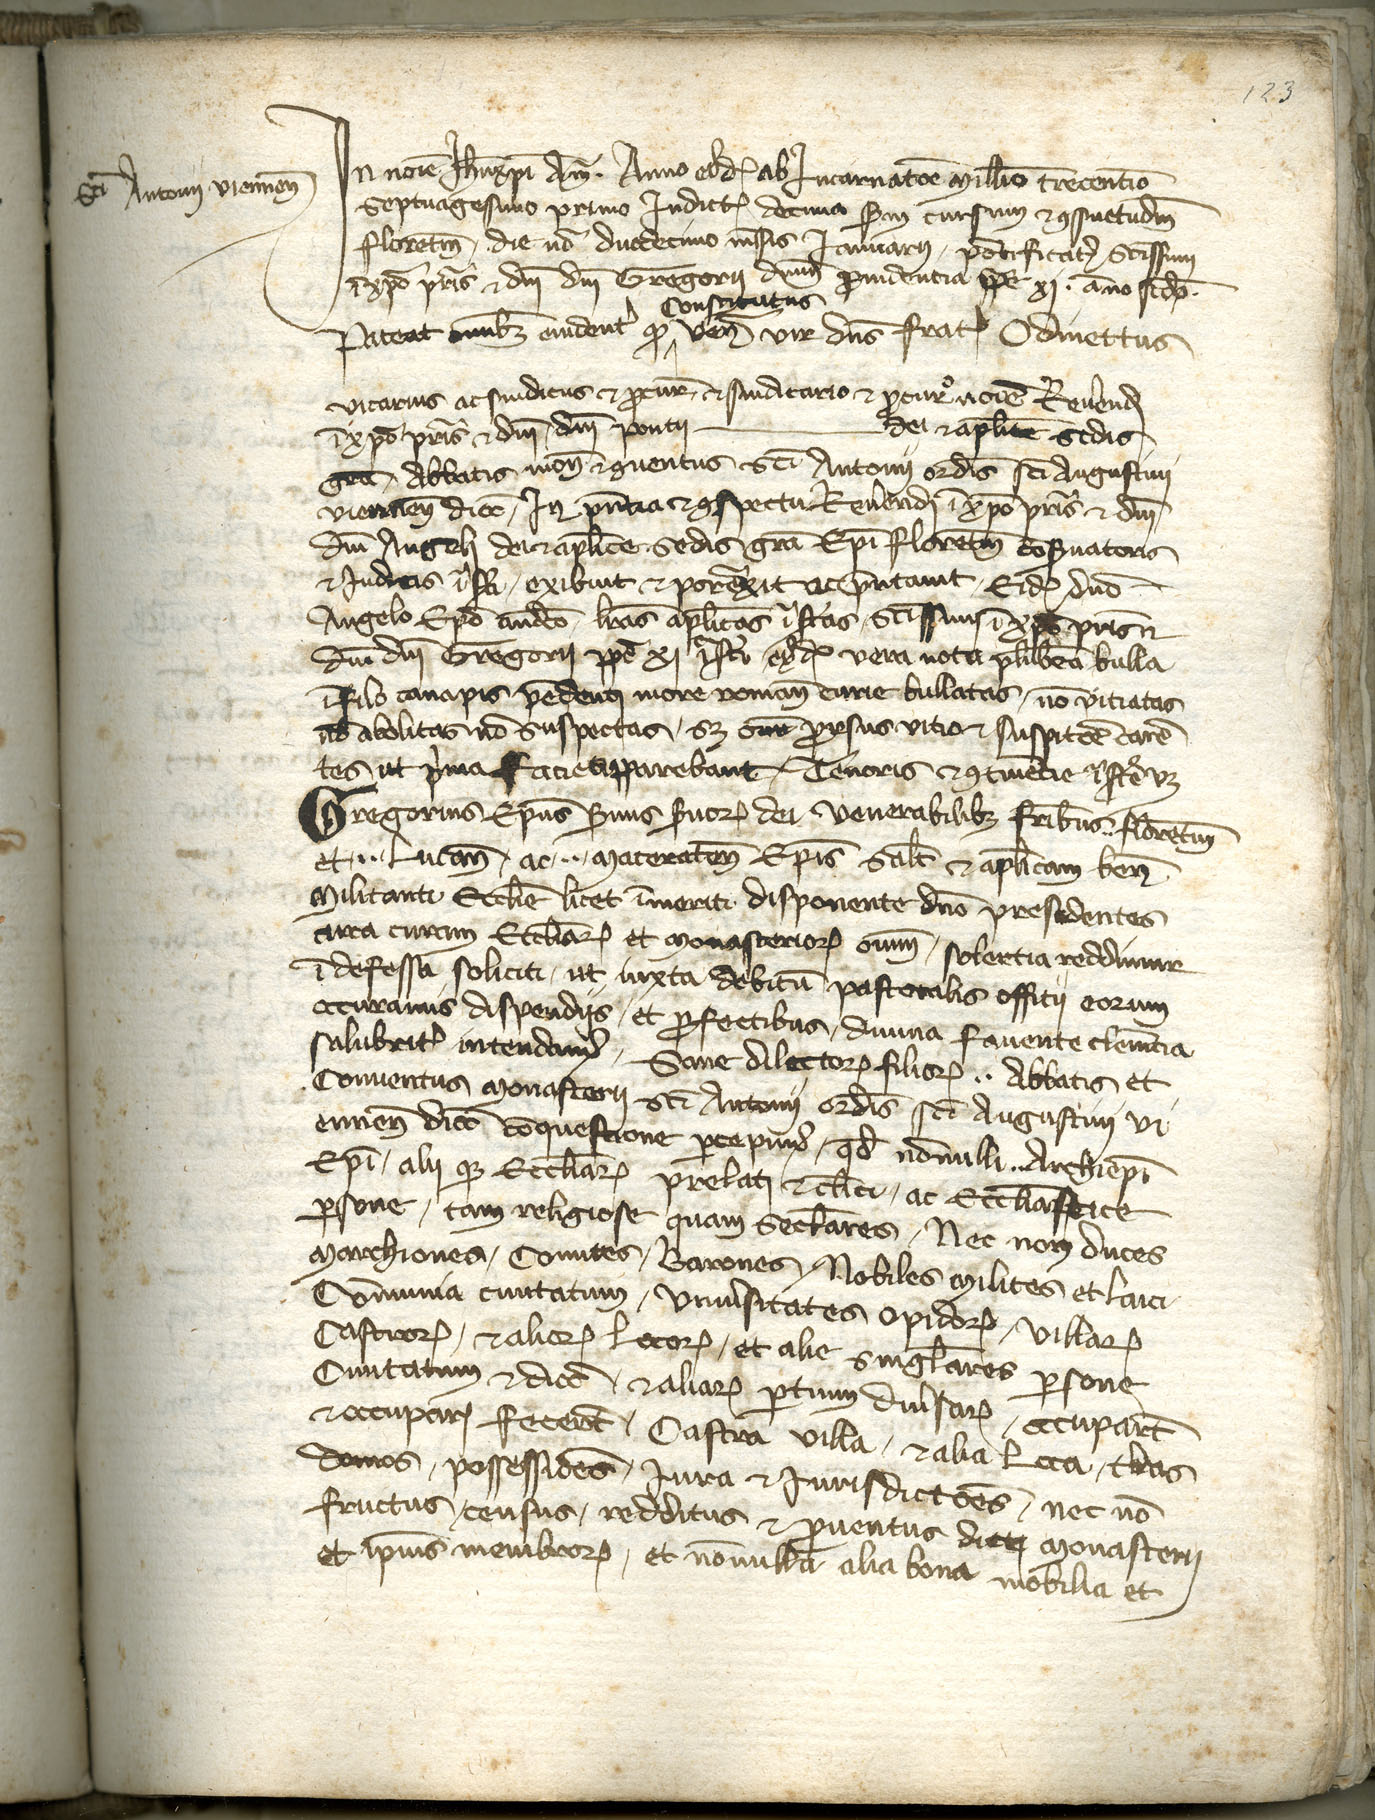 123
Sci Antonij viennen
In noie Jhu xpi Am. Anno eiusd ab Incarnatoe Millio trecentio
Septuagesimo primo Indict decima scdm cursum et gsuetudin
floretin, die uo duodecimo mesis Januarij, potificat Scissimi
i xpo pris et dni dni Gregorij diuin prouidentia ppe xi. ano scdo.
Constitutus
Pateat omibz euident qd ven vir dns frat Odinettus
vicarius ac sindicus et procur et sindicario et pcur noie Reuend
i xpo pris et dni dni pontij dei et aplice sedis
gra, Abbatis mon et guentus sci Antonij ordis sci Augustini
viennen dioc, In pntia et gspectu Reuerendi i xpo pris et dni
dni Angeli dei et aplice sedis gra Epi floretin coseruatoris
et Judicis isti, exibuit et porrexit ac pntauit, Eid dno
Angelo Epo audeo, lras aplicas istas, Scissimi i xpo pris et
dni dni Gregorij ppe xi isti eiusd vera nota plubea bulla
i filo canapis pedenti more roman curie bullatas, no vitiatas
no abolitas no suspectas, sz oni prorsus vitio et suspitoe care
tes ut prima facie apparebant, Tenoris et gtinetie istre vz
Gregorius Epus seruus seruor dei Venerabilibz fribus .. floretin
et .. Lucan, ac .. Maceraten Epis Salt et aplicam ben
Militanti Ecclie licet imeriti disponente dno presidentes
circa curam Eccliar et monasterior oium, solertia reddimur
idefessa soliciti, ut iuxta debitu pastoralis offitij eorum
occuramus dispendijs, et profectibus, diuina fauente clemetia
salubrit intendam, Sane dilector filior .. Abbatis et
Conuentus monasterij sci Antonij ordis sci Augustini vi
ennen dioc coquestione percepim, qd nonulli .. Archiepi
Epi, alij qz Eccliar prelati et clici, ac Ecclastice
persone, tam religiose quam seclares, Nec non duces
marchiones, Comites, Barones, Nobiles milites et laici
Comunia ciuitatum, Vniuersitates opidor, villar
Castror, et alior locor, et alie singlares persone
Ciuitatum et dioc, et aliar partium diuersar, occupart
et occupari fecerut, Castra villa, et alia loca, tras
domos, possessides, Jura et Jurisdictoes, nec no
fructus, census, redditus et prouentus dicti monasterij
et ipius membror, et nonulla alia bona mobilia et